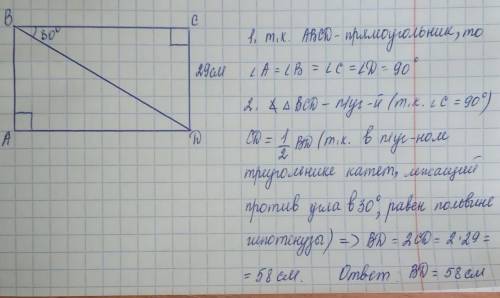 B
C
30°
29см
A
D
1. т.к. ABCD - прямоугольник, то
∠A = ∠B = ∠C = ∠D = 90°
2. ∡ △BCD - п/уг-й (т.к. ∠C = 90°)
CD = 1/2 BD (т.к. в п/уг-ном
триугольнике катет, лежащий
против угла в 30°, равен половине
гипотенузы) => BD = 2CD = 2·29 =
= 58 см. Ответ BD = 58 см